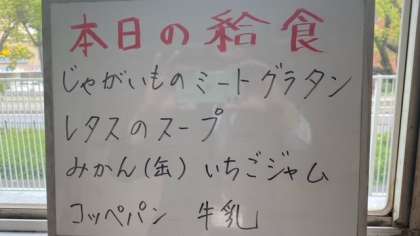 本日の給食
じゃがいものミートグラタン
レタスのスープ
みかん(缶) いちごジャム
コッペパン 牛乳